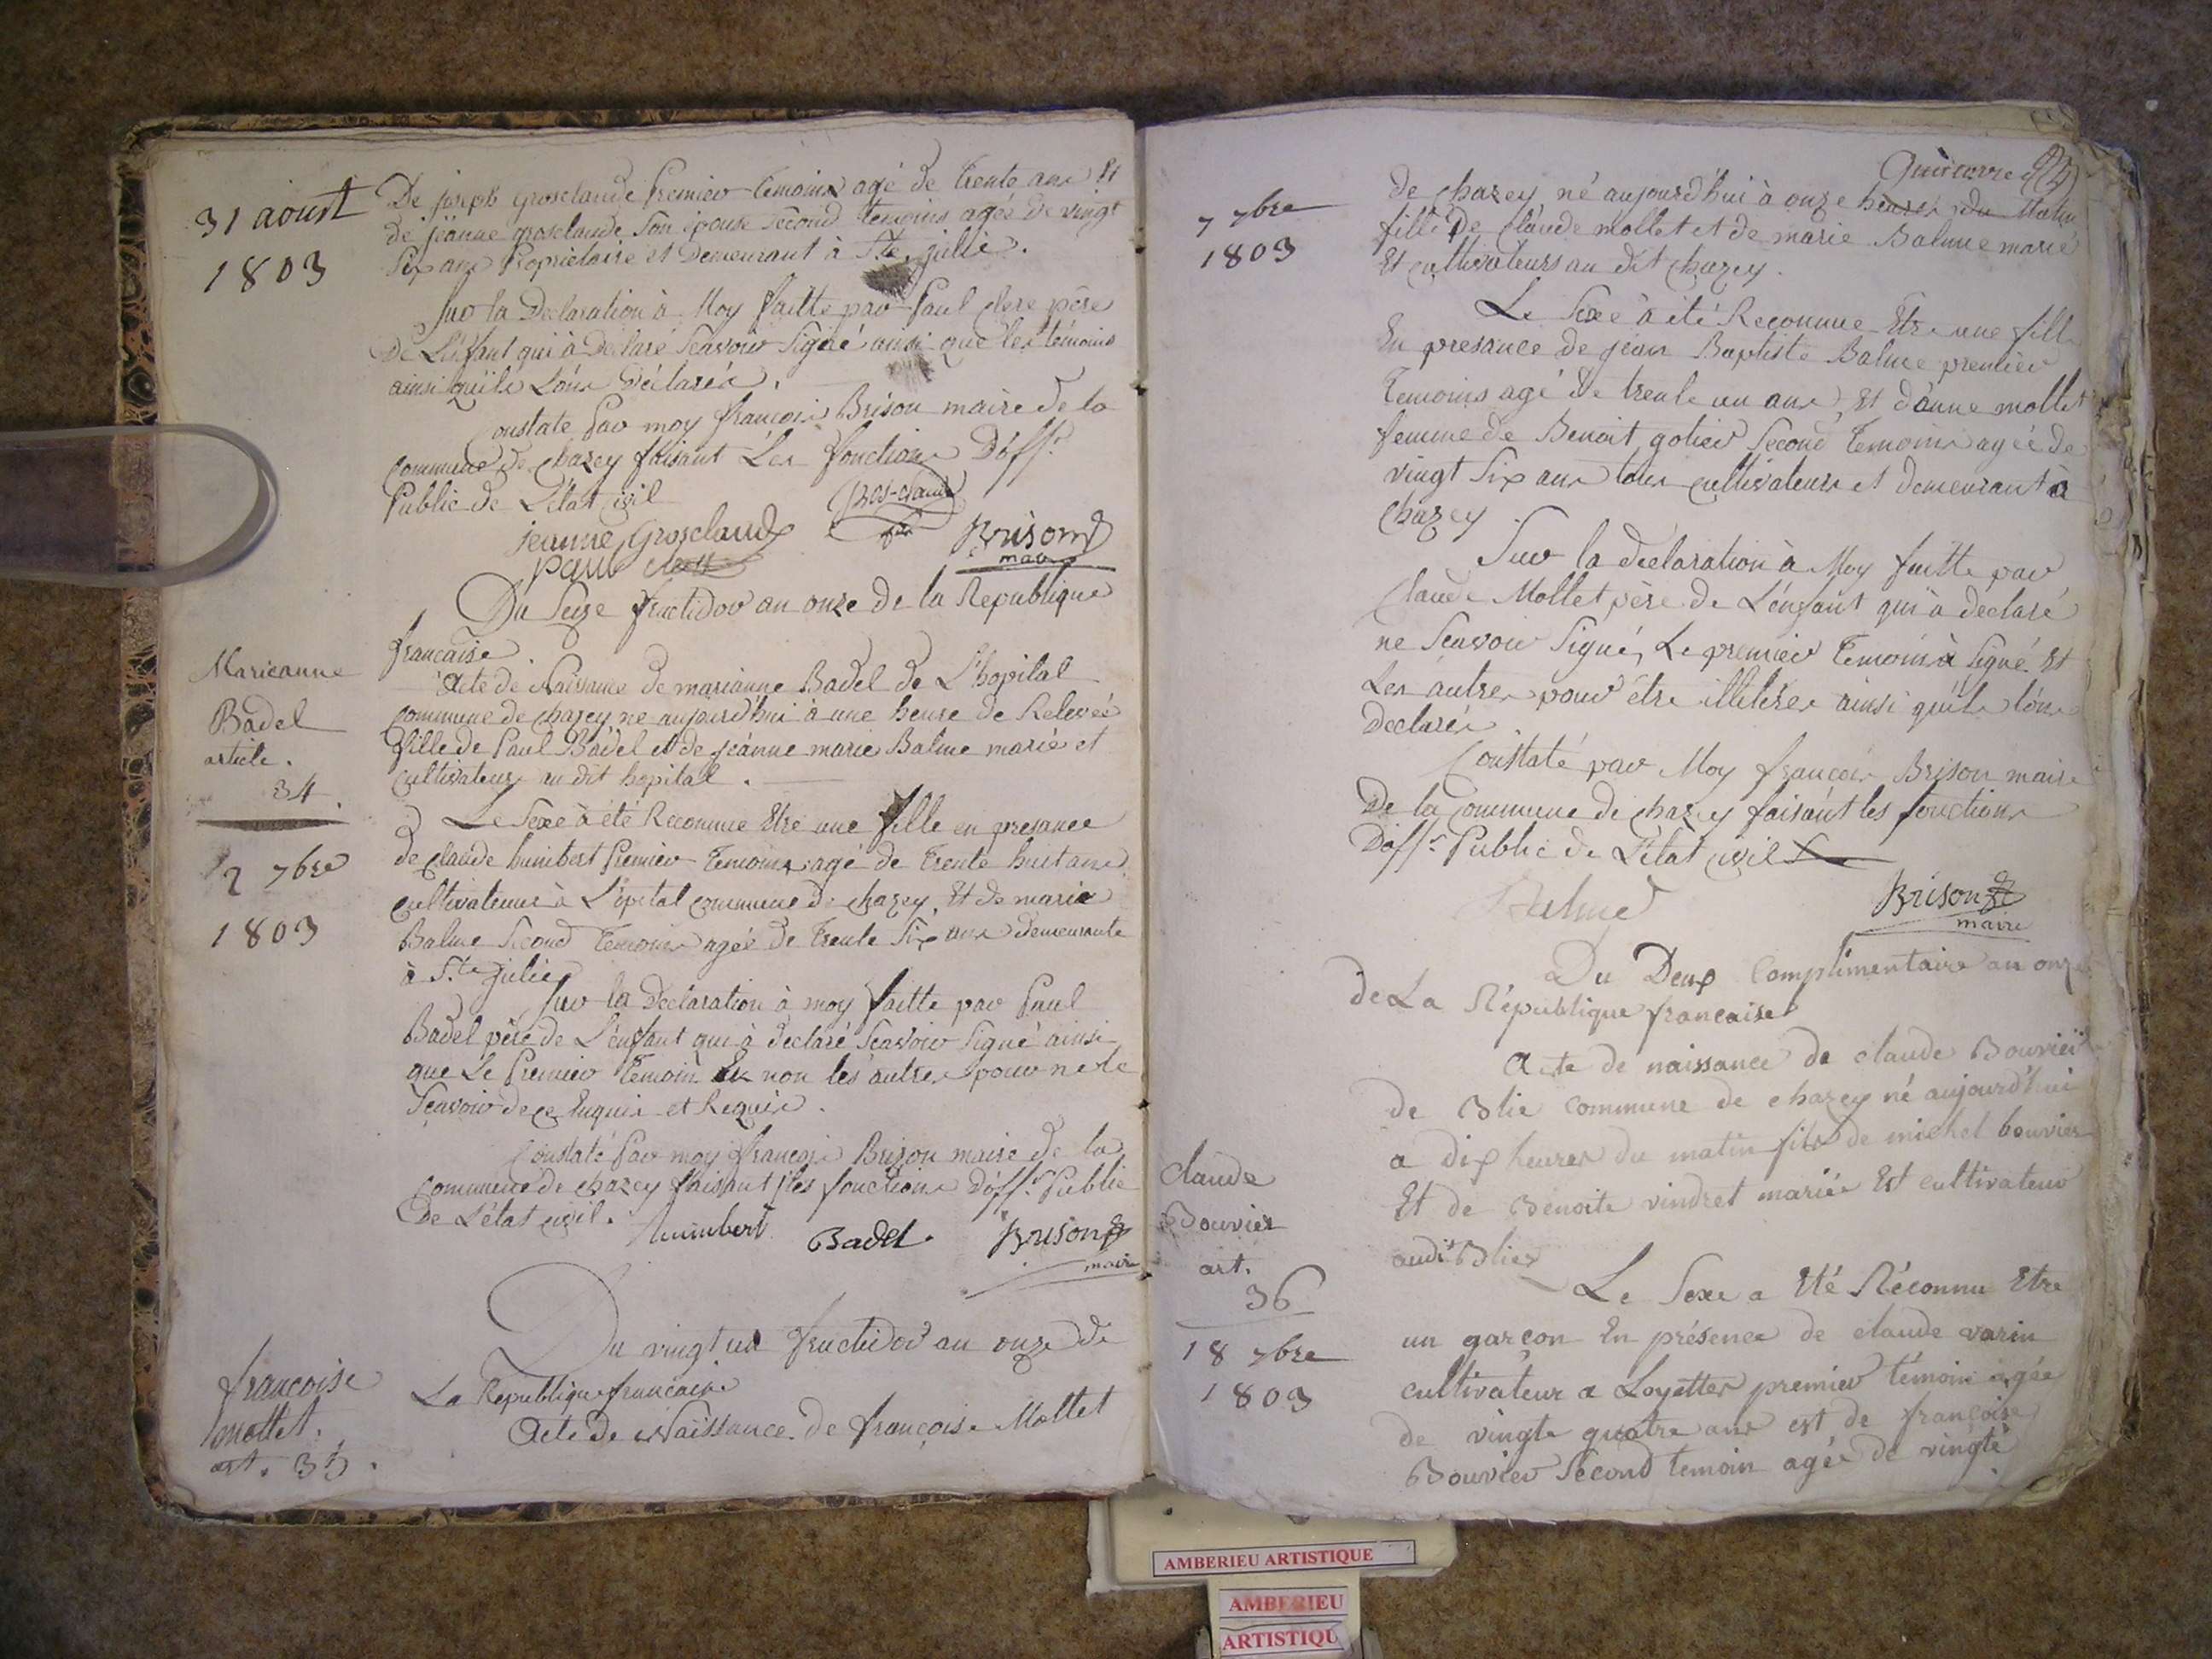 31 aoust
1803
De joseph grosclaude Premier temoins agé de trente ans Et
de jeanne grosclaude Son épouse second temoins agée de vingt
Six ans Propriétaire et Demeurant à Ste. jullie.
Sur la Declaration à Moy faitte par Paul clere père
De L'enfant qui à Declaré Scavoir Signé ainsi que les témoins
ainsi quils L'ons déclarés.
Constate Par moy françois Brison maire de la
commune de chazey faisant Les fonctions D'offr.
Public de L'état civil
jeanne Grosclaude
Brison
maire
paul
Du Seize fructidor an onze de la Republique
française
Marieanne
Badel
article.
34
2 7bre
1803
Acte de Naissance de marianne Badel de L'hopital
commune de chazey ne aujourd'hui à une heure de Relevée
fille de Paul Badel et de jeanne marie Balme marié et
cultivateurs au dit hopital.
Le Sexe à été Reconnue Etre une fille en presance
de claude humbert Premier Temoins agé de trente huit ans
cultivateurs à L'opital commune de chazey, Et de marie
Balme Second temoins agée de trente Six ans demeurante
à Ste julie
Sur la Declaration à moy faitte par Paul
Badel père de L'enfant qui à declaré Scavoir Signé ainsi
que Le Premier Temoin Et non les autres pour ne le
Scavoir de ce Enquis et Requis.
Constaté Par moy françois Brison maire de la
commune de chazey faisant les fonctions D'offr. Public
De L'état civil.
humbert Badel. Brison
maire
Du vingt un fructidor an onze de
La Republique francaise
francoise
mollet.
art. 35.
Acte de Naissance de françoise Mollet
7 7bre
1803
de chazey né aujourd'hui à onze heures du Matin
fille De claude mollet et de marie Balme marié
Et cultivateurs au dit chazey.
Le Sexe à été Reconnue Etre une fille
En presance de jean Baptiste Balme premier
Temoins agé de trente un ans, Et d'anne mollet
femme de Benoit golier Second Temoins agée de
vingt Six ans tous cultivateurs et demeurant à
chazey
Sur la déclaration à Moy faitte par
Claude Mollet père de L'enfant qui à déclaré
ne Scavoir Signé, Le premier Temoin à Signé Et
Les autres pour être illiteres ainsi quils l'ons
Declarés
Constaté par Moy françois Brison maire
De la Commune de chazey faisant les fonctions
D'offr. Public de L'état civil
Balme Brison
maire
Du Deux Complimentaire an onze
de La République francaise
Acte de naissance de claude Bouvier
de Blie commune de chazey né aujourd'hui
a dix heures du matin fils de michel bouvier
Et de Benoite vindret mariée Est cultivateur
audi Blie
Claude
Bouvier
art.
36
18 7bre
1803
Le Sexe a Eté Réconnu Etre
un garçon En présence de claude varin
cultivateur a Loyettes premier témoin agée
de vingte quatre ans est de françoise
Bouvier Second temoin agée de vingte
AMBERIEU ARTISTIQUE
AMBERIEU
ARTISTIQU